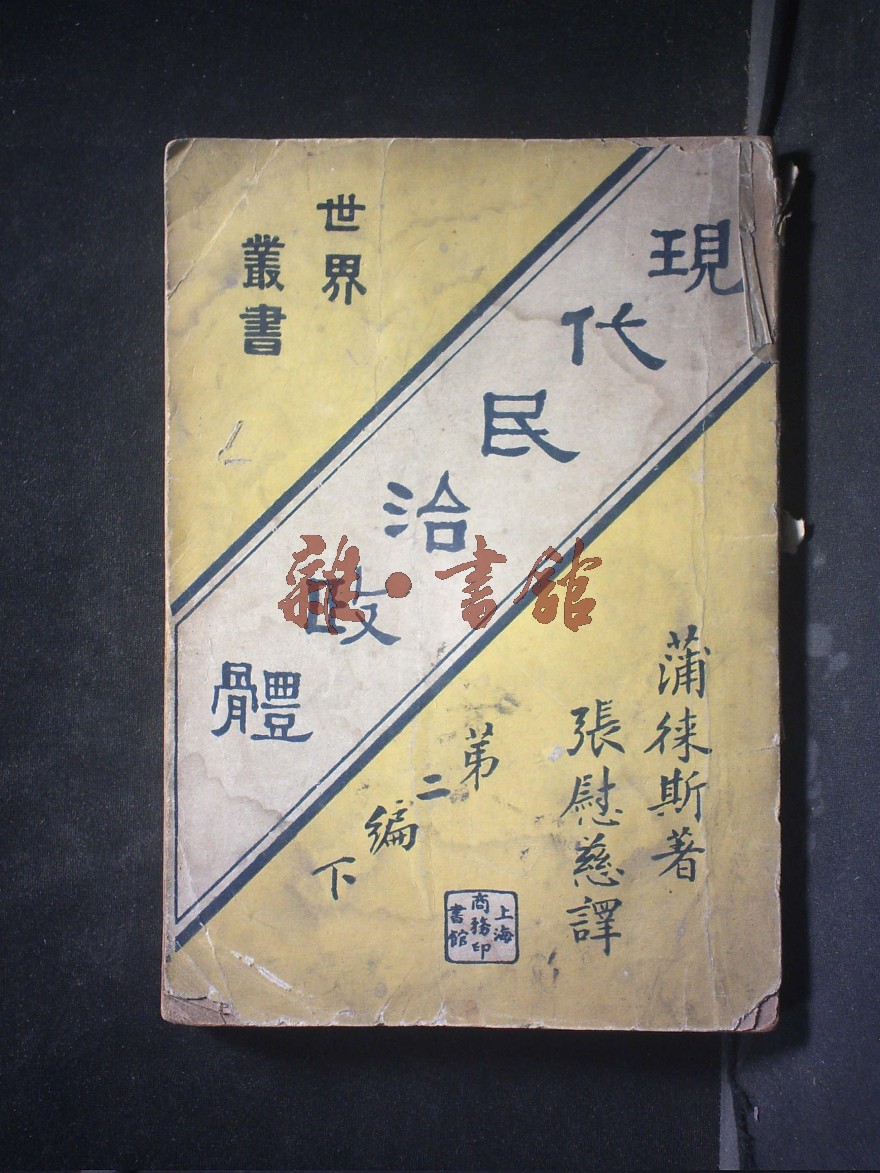 現代民治政體
世界
叢書
蒲徠斯著
張慰慈譯
第二編下
上海
商務印
書館
雜·書館